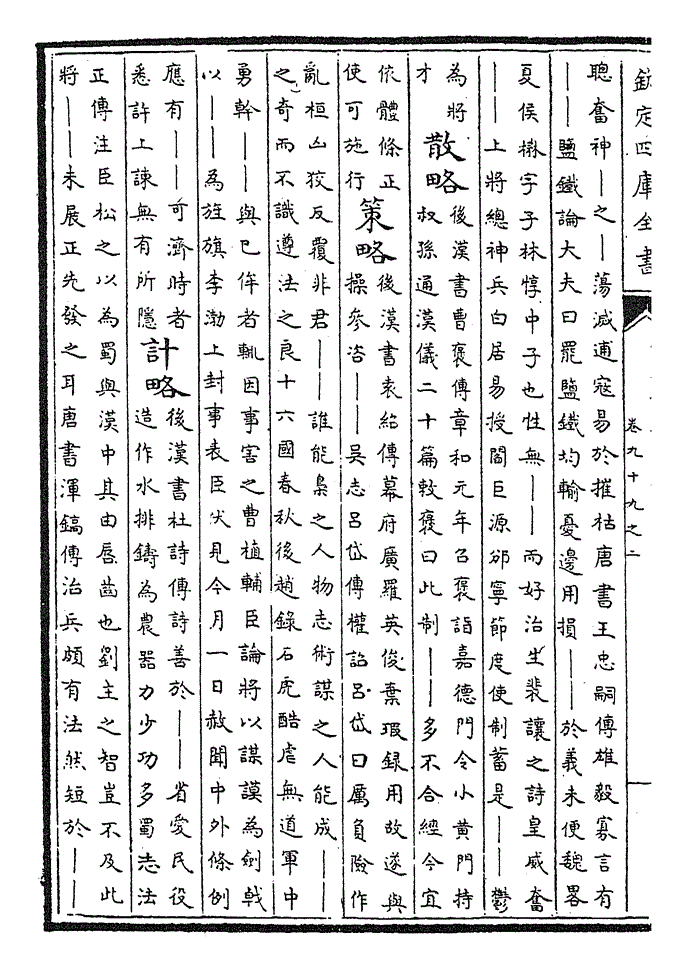 欽定四庫全書
卷九十九之二
聰奮神——之——蕩滅逋寇易於摧枯唐書王忠嗣傳雄毅寡言有
——鹽鐵論大夫曰罷鹽鐵均輸憂邊用損——於義未便魏畧
夏侯楙字子林惇中子也性無——而好治生裴讓之詩皇威奮
——上將總神兵白居易授閻巨源邠寧節度使制蓄是——鬱
為將
才
散略
後漢書曹褒傳章和元年召褒詣嘉德門令小黃門持
叔孫通漢儀二十篇敕褒曰此制——多不合經今宜
依體條正
使可施行
策略
後漢書袁紹傳幕府廣羅英俊棄瑕録用故遂與
操參咨——吳志呂岱傳權詔呂岱曰厲負險作
亂桓凶狡反覆非君——誰能梟之人物志術謀之人能成——
之奇而不識遵法之良十六國春秋後趙錄石虎酷虐無道軍中
勇幹——與已侔者輒因事害之曹植輔臣論將以謀謨為劍戟
以——為旌旗李渤上封事表臣伏見今月一日赦聞中外條例
應有——可濟時者
悉許上諫無有所隱
計略
後漢書杜詩傳詩善於——省愛民役
造作水排鑄為農器力少功多蜀志法
正傳注臣松之以為蜀與漢中其由唇齒也劉主之智豈不及此
將——未展正先發之耳唐書渾鎬傳治兵頗有法然短於——